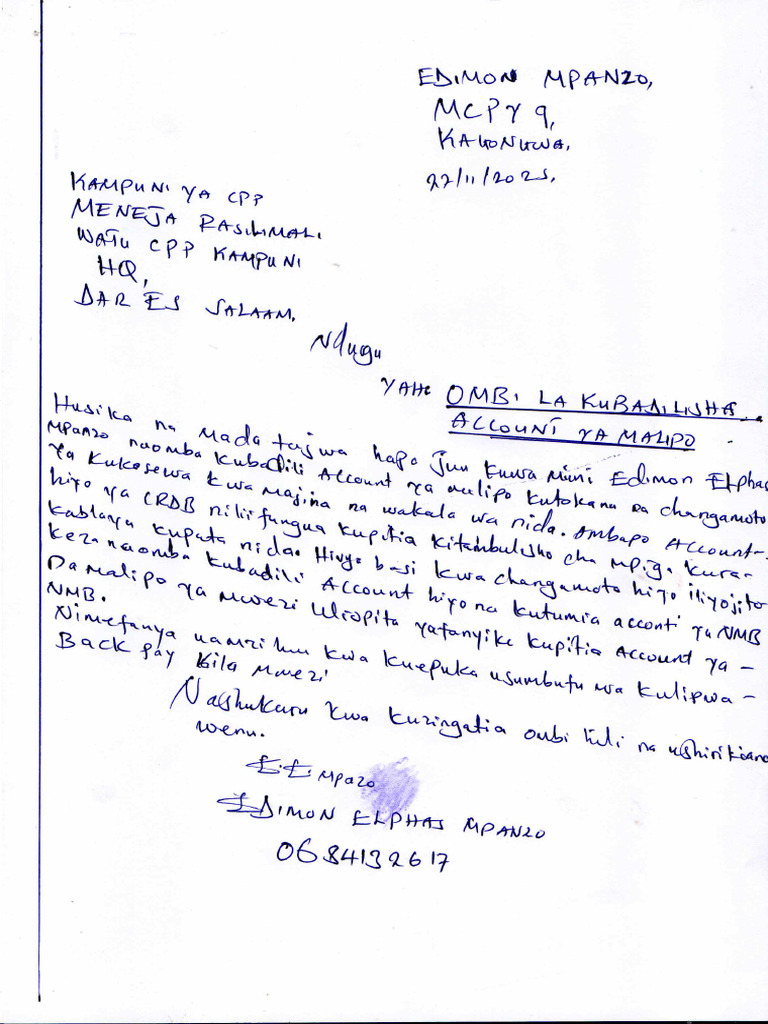 EDIMON MPANZO,
MCPY 9,
KAKONKWA,
22/11/2025.
KAMPUNI YA CPP
MENEJA RASILIMALI
WATU CPP KAMPUNI
HQ,
DAR ES SALAAM.
Ndugu
YAH: OMBI LA KUBADILISHA
ACCOUNT YA MALIPO.
Husika na Mada tajwa hapo juu kuwa mimi Edimon Elphas
Mpanzo naomba kubadili Account ya malipo kutokana na changamoto
ya kukosewa kwa majina na wakala wa nida. Ambapo Account-
hiyo ya CRDB niliifungua kupitia kitambulisho cha mpiga kura-
kabla ya kupata nida. Hivyo basi kwa changamoto hiyo iliyojito
keza naomba kubadili Account hiyo na kutumia acconti ya NMB
Da malipo ya mwezi uliopita yafanyike kupitia Account ya -
NMB.
Nimefanya uamzi huu kwa kuepuka usumbufu wa kulipwa -
Back pay kila mwezi
Nashukuru kwa kuzingatia ombi hili na ushirikiano
wenu.
E.E. Mpazo
EDIMON ELPHAS MPANZO
0684132617